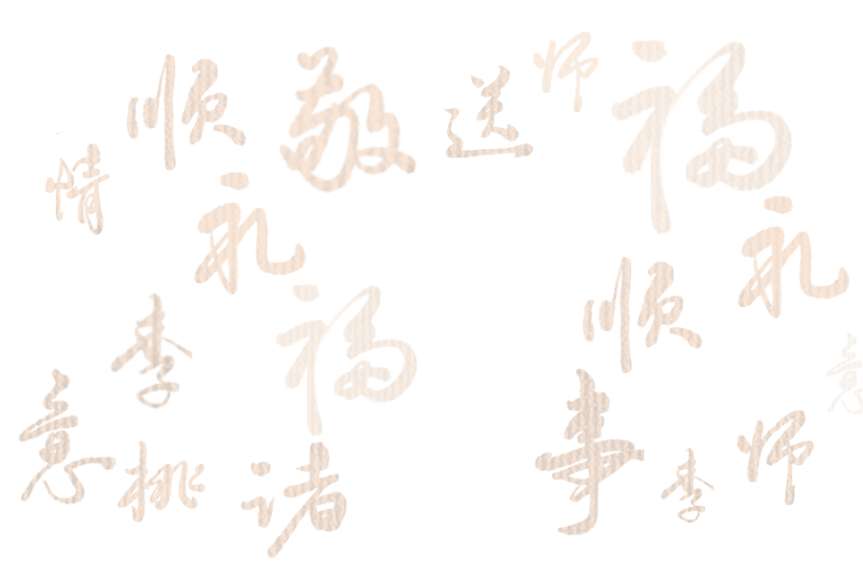 师
顺 敬 送 福
情
礼 礼
顺
福
李
意
意 事 师
桃 诸 李